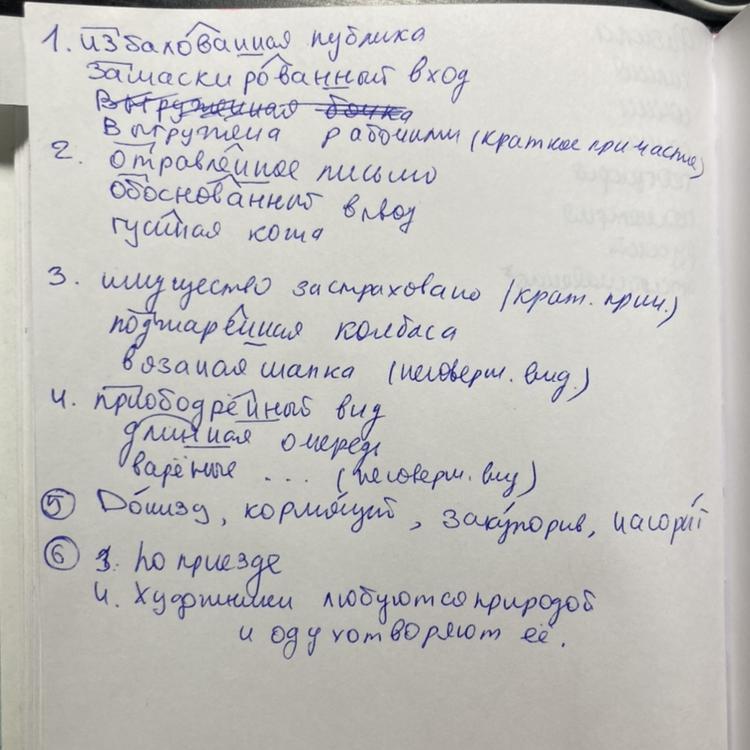 1. избалованная публика
замаскированный вход
Выгруженная бочка
Выгружена рабочими (краткое причастие)
2. отправленное письмо
обоснованный вывод
густая каша
3. имущество застраховано (крат. прич.)
поджаренная колбаса
вязаная шапка (несоверш. вид.)
4. приободрённый вид
длинная очередь
варёные ... (несоверш. вид)
5 До́низу, кормя́щий, заку́порив, нагори́т
6 1. По приезде
4. Художники любуются природой
и одухотворяют её.